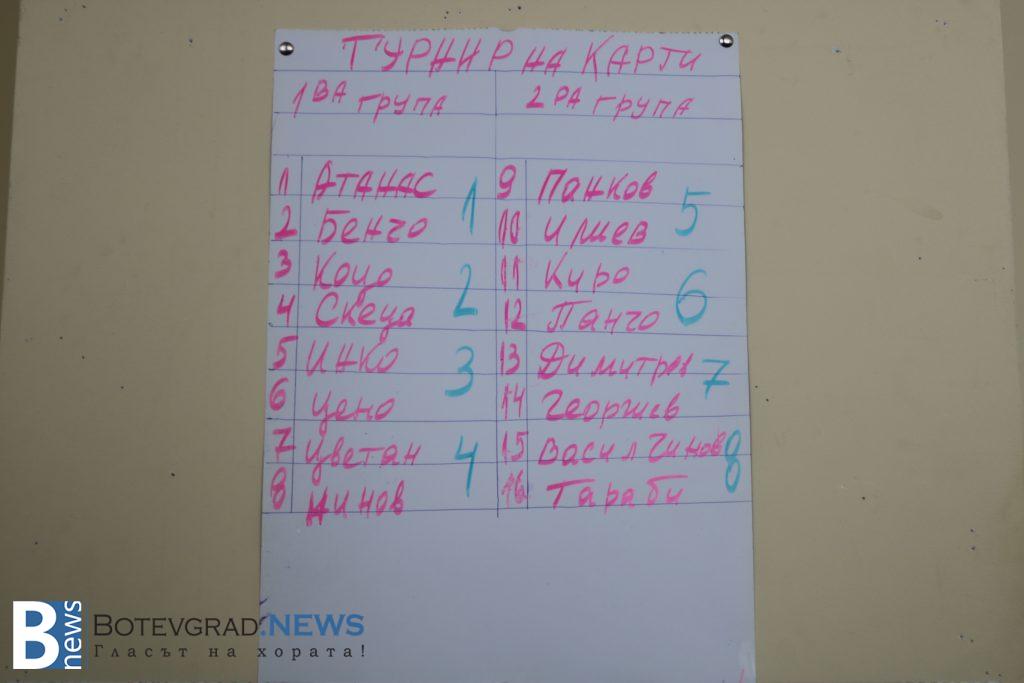 ТУРНИР НА КАРТИ
1ВА ГРУПА
1 АТАНАС
2 Бенчо
1
3 Коцо
4 Скеца
2
5 Инко
6 Цено
3
7 Цветан
8 Нинов
4
2РА ГРУПА
9 Панков
10 Илиев
5
11 Киро
12 Панчо
6
13 Димитров
14 Георгиев
7
15 Васил Чинов
16 Тараби
8
B news
BOTEVGRAD.NEWS
Гласът на хората!